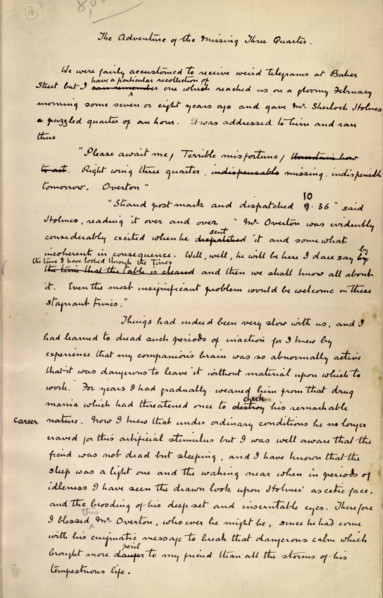 The Adventure of the Missing Three Quarter.
We were fairly accustomed to receive weird telegrams at Baker
have a particular recollection of
Street but I can remember one which reached us on a gloomy February
morning some seven or eight years ago and gave Mr. Sherlock Holmes
a puzzled quarter of an hour. It was addressed to him and ran
thus
"Please await me, Terrible misfortune, Uncertain how
to act. Right wing three quarter, indispensable missing, indispensable
tomorrow. Overton"
10
"Strand post mark and dispatched 9.36" said
Holmes, reading it over and over "Mr. Overton was evidently
sent
considerably excited when he dispatched it and somewhat
incoherent in consequence. Well, well, he will be here I dare say by
the time I have looked through the Times
the time that the table is cleared and then we shall know all about
it. Even the most insignificant problem would be welcome in these
stagnant times."
Things had indeed been very slow with us, and I
had learned to dread such periods of inaction for I knew by
experience that my companion's brain was so abnormally active
that it was dangerous to leave it without material upon which to
work. For years I had gradually weaned him from that drug
check
mania which had threatened once to destroy his remarkable
career
nature. Now I knew that under ordinary conditions he no longer
craved for this artificial stimulus but I was well aware that the
fiend was not dead but sleeping, and I have known that the
sleep was a light one and the waking near when in periods of
idleness I have seen the drawn look upon Holmes' ascetic face,
and the brooding of his deep set and inscrutable eyes. Therefore
I blessed this Mr. Overton, who ever he might be, since he had come
with his enigmatic message to break that dangerous calm which
peril
brought more danger to my friend than all the storms of his
tempestuous life.